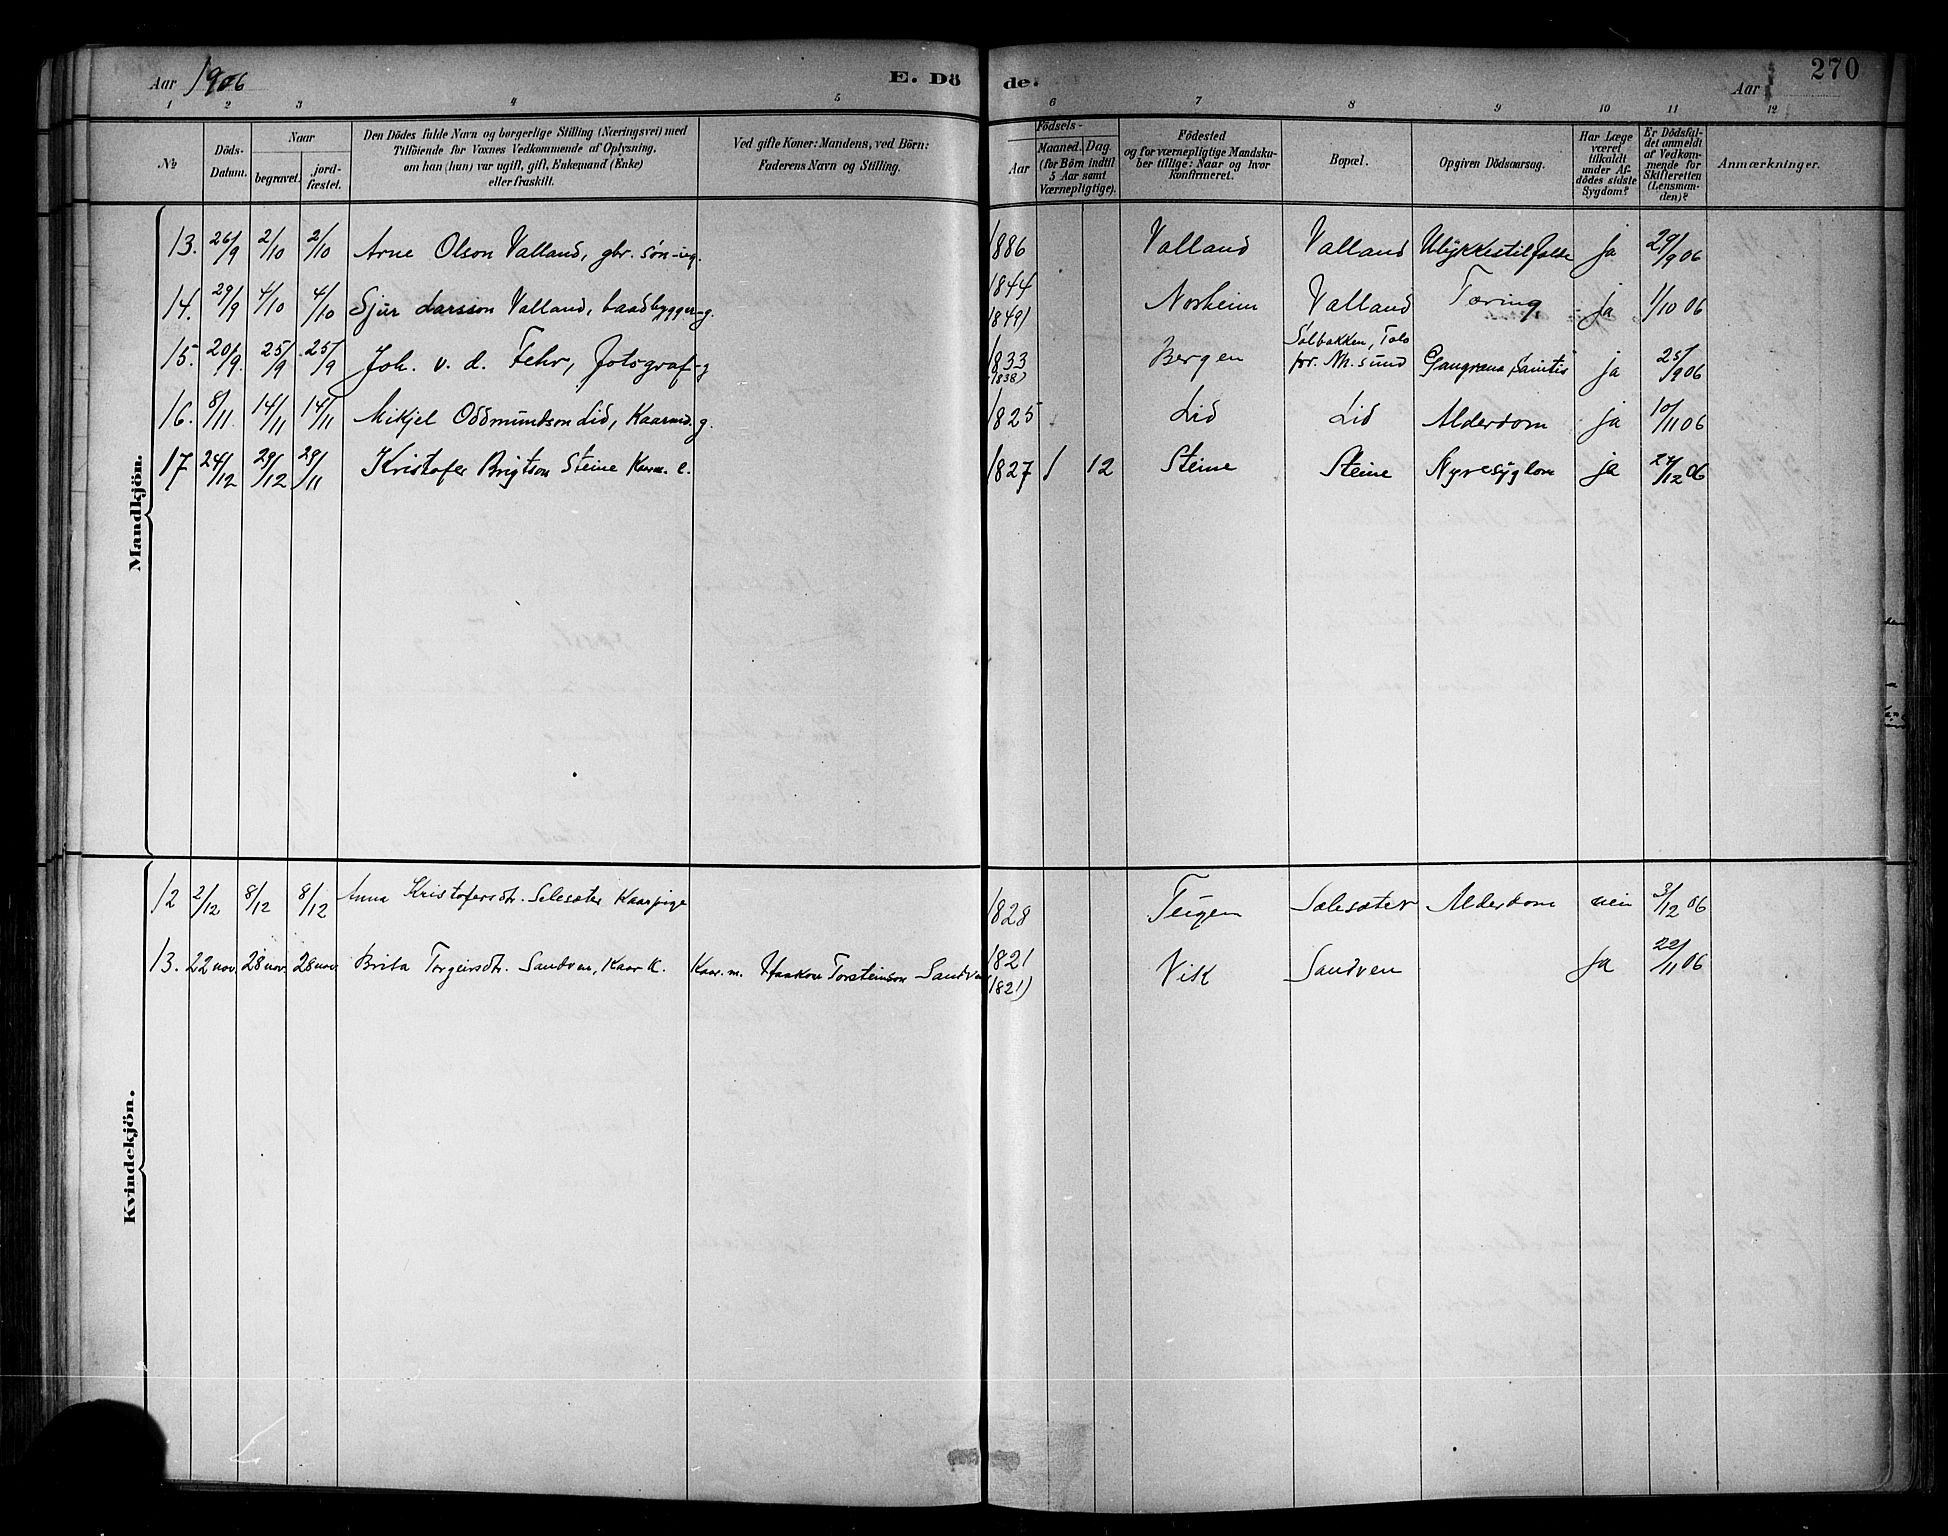 Aar 1906 E. Dö de. Aar 270
1 2 3 4 5 6 7 8 9 10 11 12
№
Döds-Datum.
Naar
begravet.
jord-fæstet.
Den Dödes fulde Navn og borgerlige Stilling (Næringsvei) med
Tilföiende for Voxnes Vedkommende af Oplysning,
om han (hun) var ugift, gift, Enkemand (Enke)
eller fraskilt.
Ved gifte Koner: Mandens, ved Börn:
Faderens Navn og Stilling.
Födsels-
Aar
Maaned. Dag.
(for Börn indtil
5 Aar samt
Værnepligtige).
Födested
og for værnepligtige Mandska-
ber tillige: Naar og hvor
Konfirmeret.
Bopæl.
Opgiven Dödsaarsag.
Har Læge
været
tilkaldt
under Af-
dödes sidste
Sygdom?
Er Dödsfal-
det anmeldt
af Vedkom-
mende for
Skifteretten
(Lensman-
den)?
Anmærkninger.
Mandkjön.
13. 26/9 2/10 2/10 Arne Olson Valland, gbr. søn-ug. 1886 Valland Valland Ulykkestilfælde ja 29/9 06
14. 29/9 4/10 4/10 Sjur Larsson Valland, baadbygger-g. 1844 (1849) Norheim Valland Tæring ja 1/10 06
15. 20/9. 25/9 25/9 Joh. v. d. Fehr, fotograf-g 1833 (1838) Bergen Solbakken, Tolo
for. Nh. sund Gangræna senitis ja 25/9 06
16. 8/11. 14/11 14/11 Mikjel Oddmundson Lid, Kaarmd. g. 1825 Lid Lid Alderdom ja 10/11 06
17 24/12 29/12 29/11 Kristofer Brigtson Steine Kaarm. e. 1827 1 12 Steine Steine Nyresygdom ja 27/12 06
Kvindekjön.
12 2/12 8/12 8/12 Anna Kristofersdtr. Selesæter Kaarpige 1828 Teigen Sælesæter Alderdom nein 3/12 06
13. 22 nov. 28 nov. 28 nov Brita Torgeirsdtr. Sandven, Kaar K. Kaar. m. Haakon Torsteinson Sandven 1821 (1821) Vik Sandven Ja 22/11 06